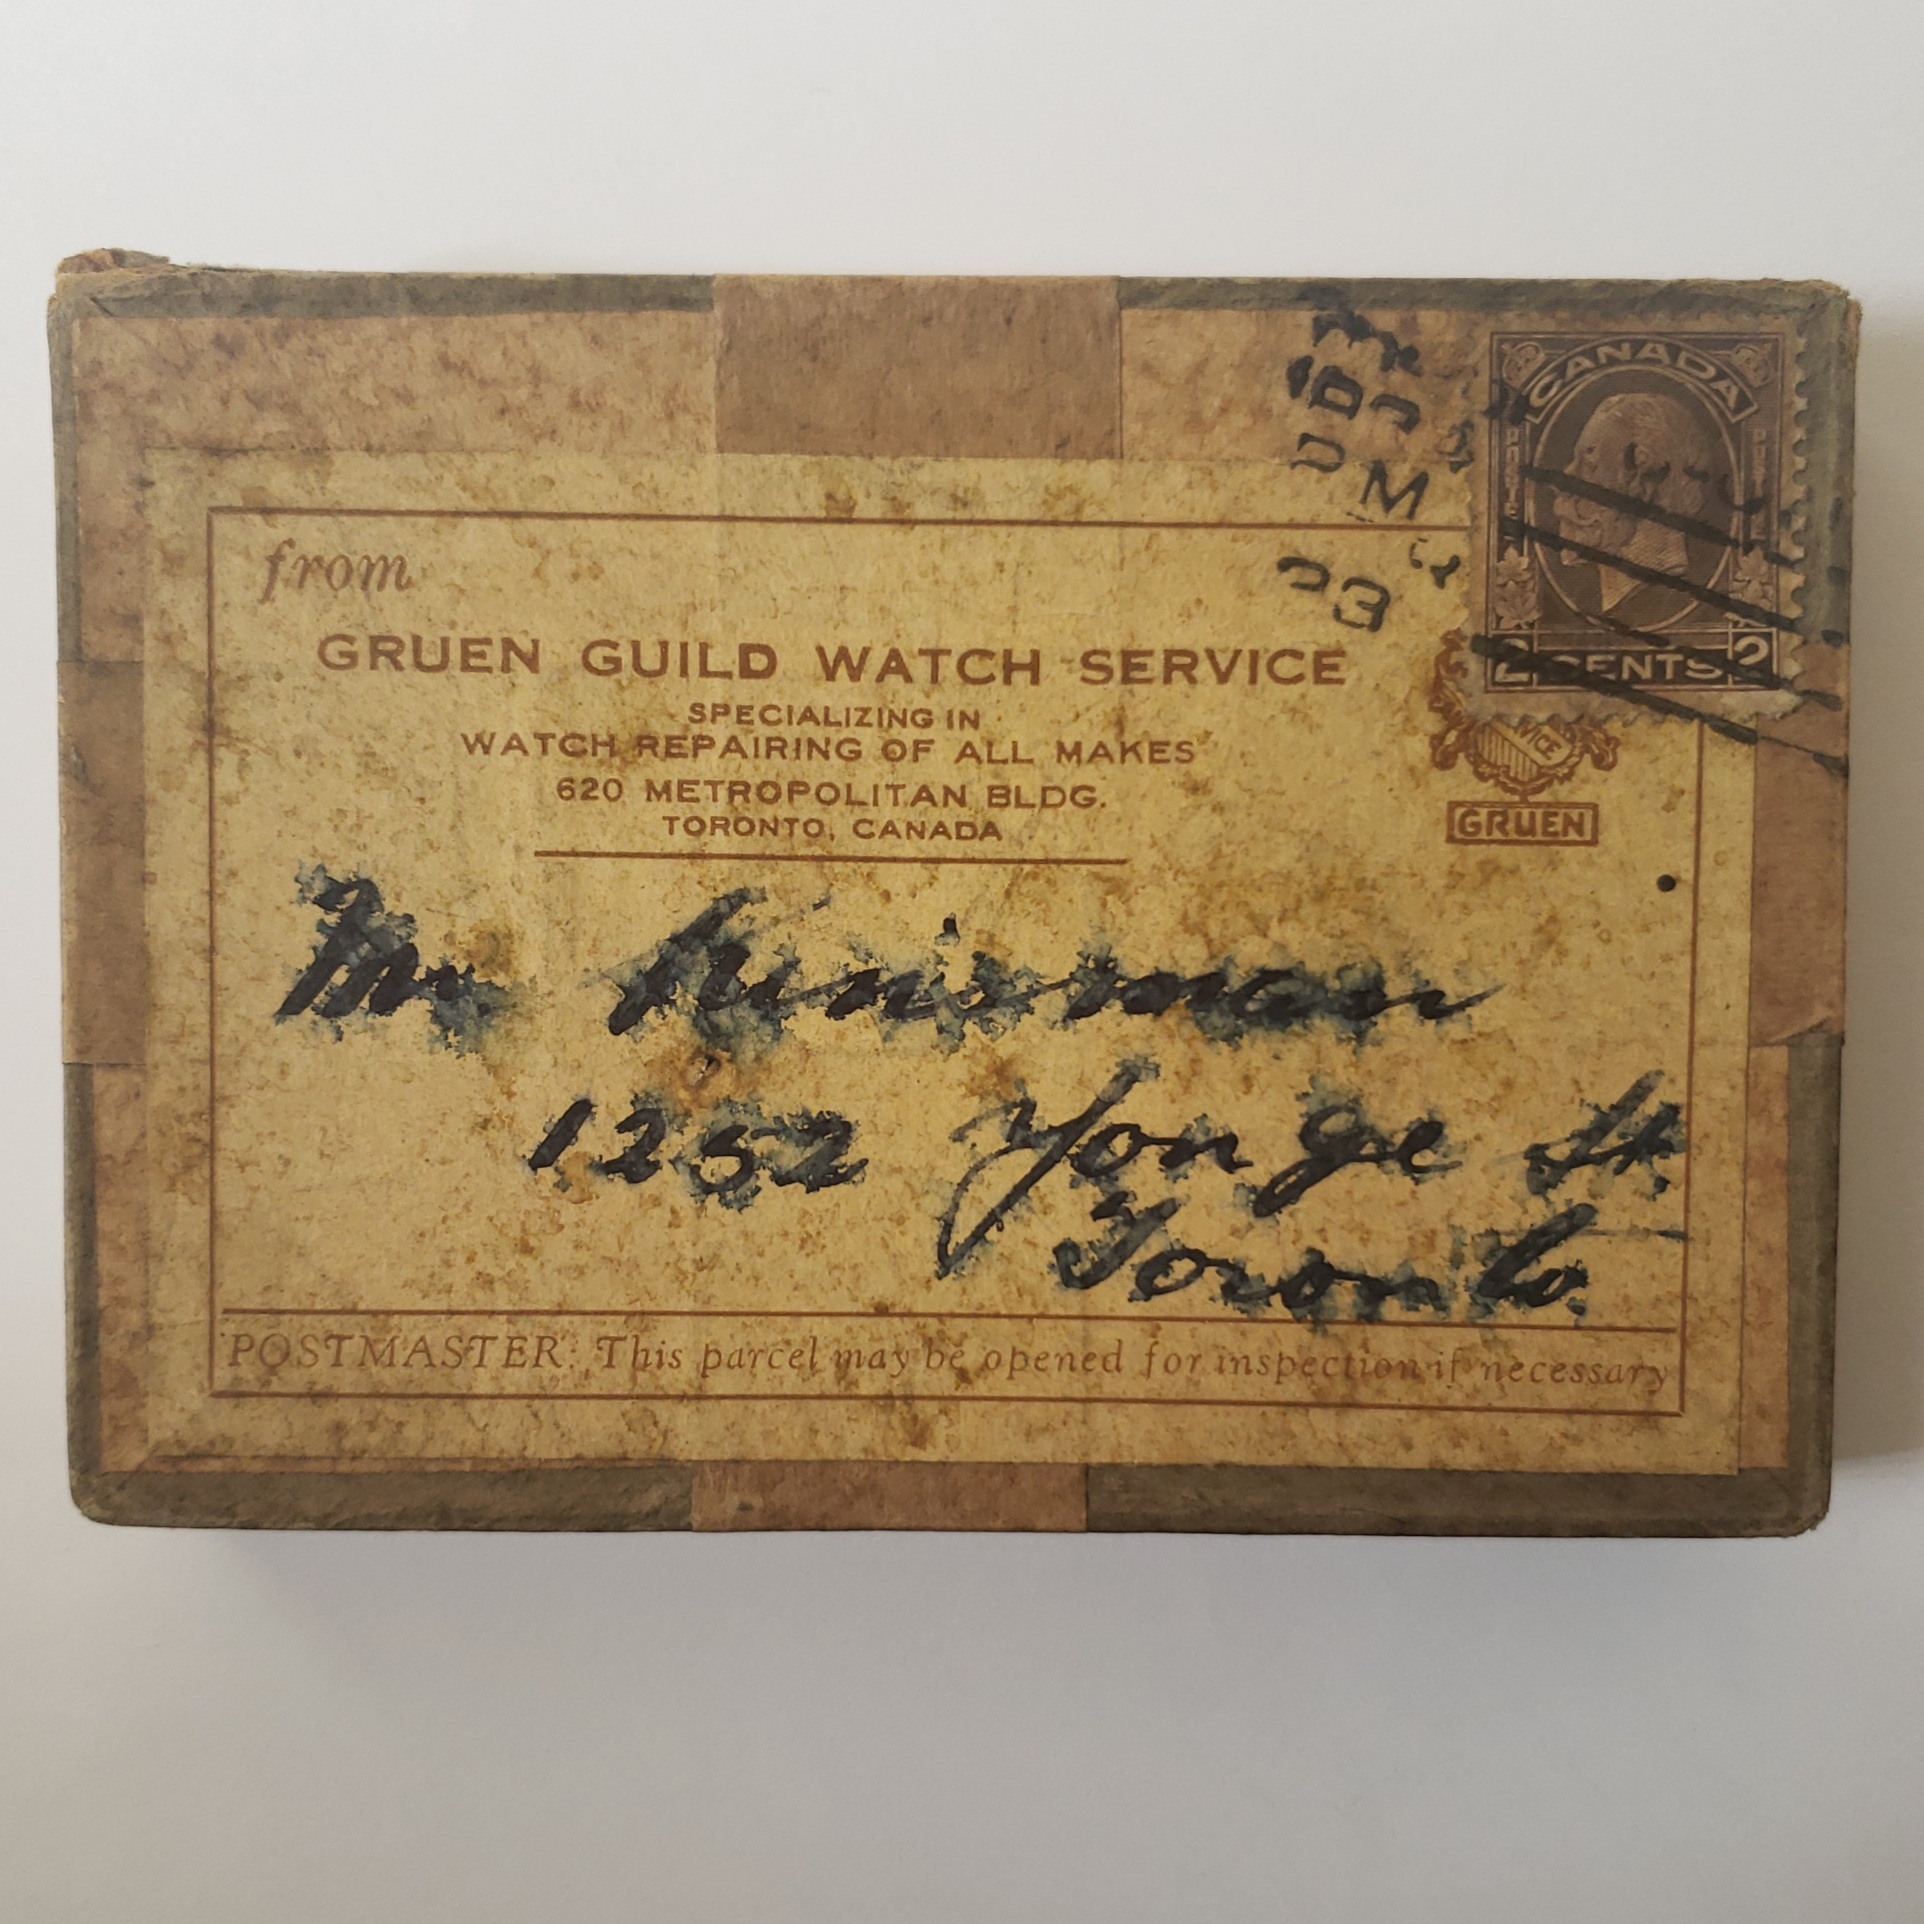 CANADA
POSTES
POSTAGE
2 CENTS 2
PM
from
GRUEN GUILD WATCH SERVICE
SPECIALIZING IN
WATCH REPAIRING OF ALL MAKES
620 METROPOLITAN BLDG.
TORONTO, CANADA
GRUEN
Mr Kinsman
1252 Yonge St.
Toronto.
POSTMASTER: This parcel may be opened for inspection if necessary